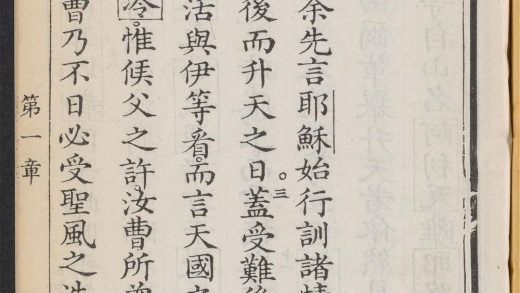 余先言耶穌始行訓諸情
後而升天之日。三蓋受難後
活與伊等看。而言天國之
冷。惟候父之許。汝曹所
曹乃不日必受聖風之洗
第一章